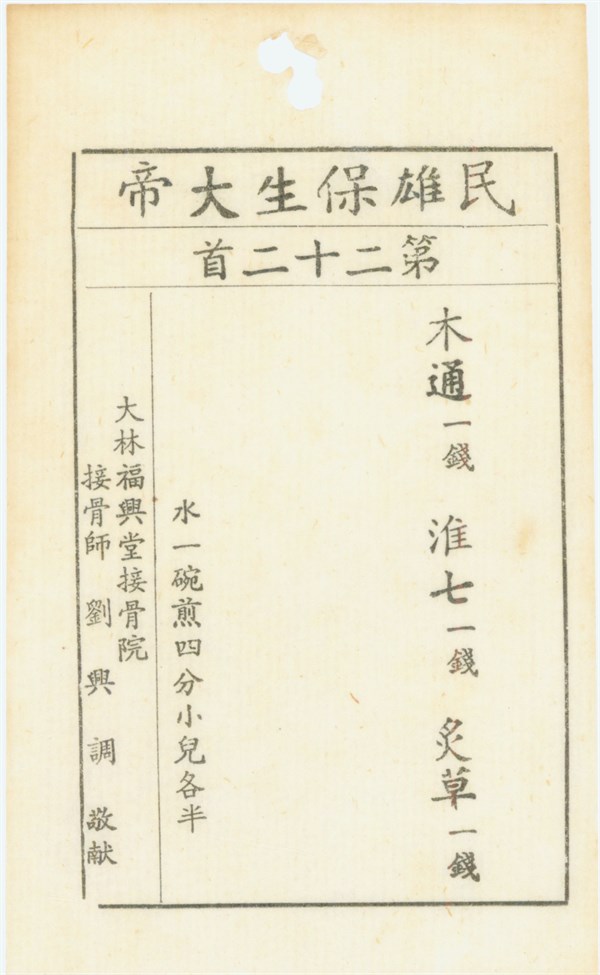 民雄保生大帝
第二十二首
木通一錢 淮七一錢 炙草一錢
水一碗煎四分小兒各半
大林福興堂接骨院
接骨師 劉興調 敬献